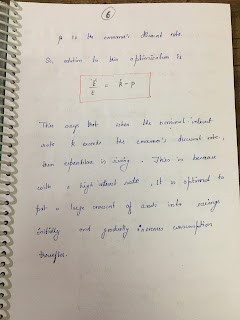 6
ρ is the consumer's discount rate.
So, solution to this optimization is
Ė/E = k - ρ
This says that when the nominal interest
rate k exceeds the consumer's discount rate,
then expenditure is rising. This is because
with a high interest rate, it is optimal to
put a large amount of assets into savings
initially and gradually increase consumption
thereafter.